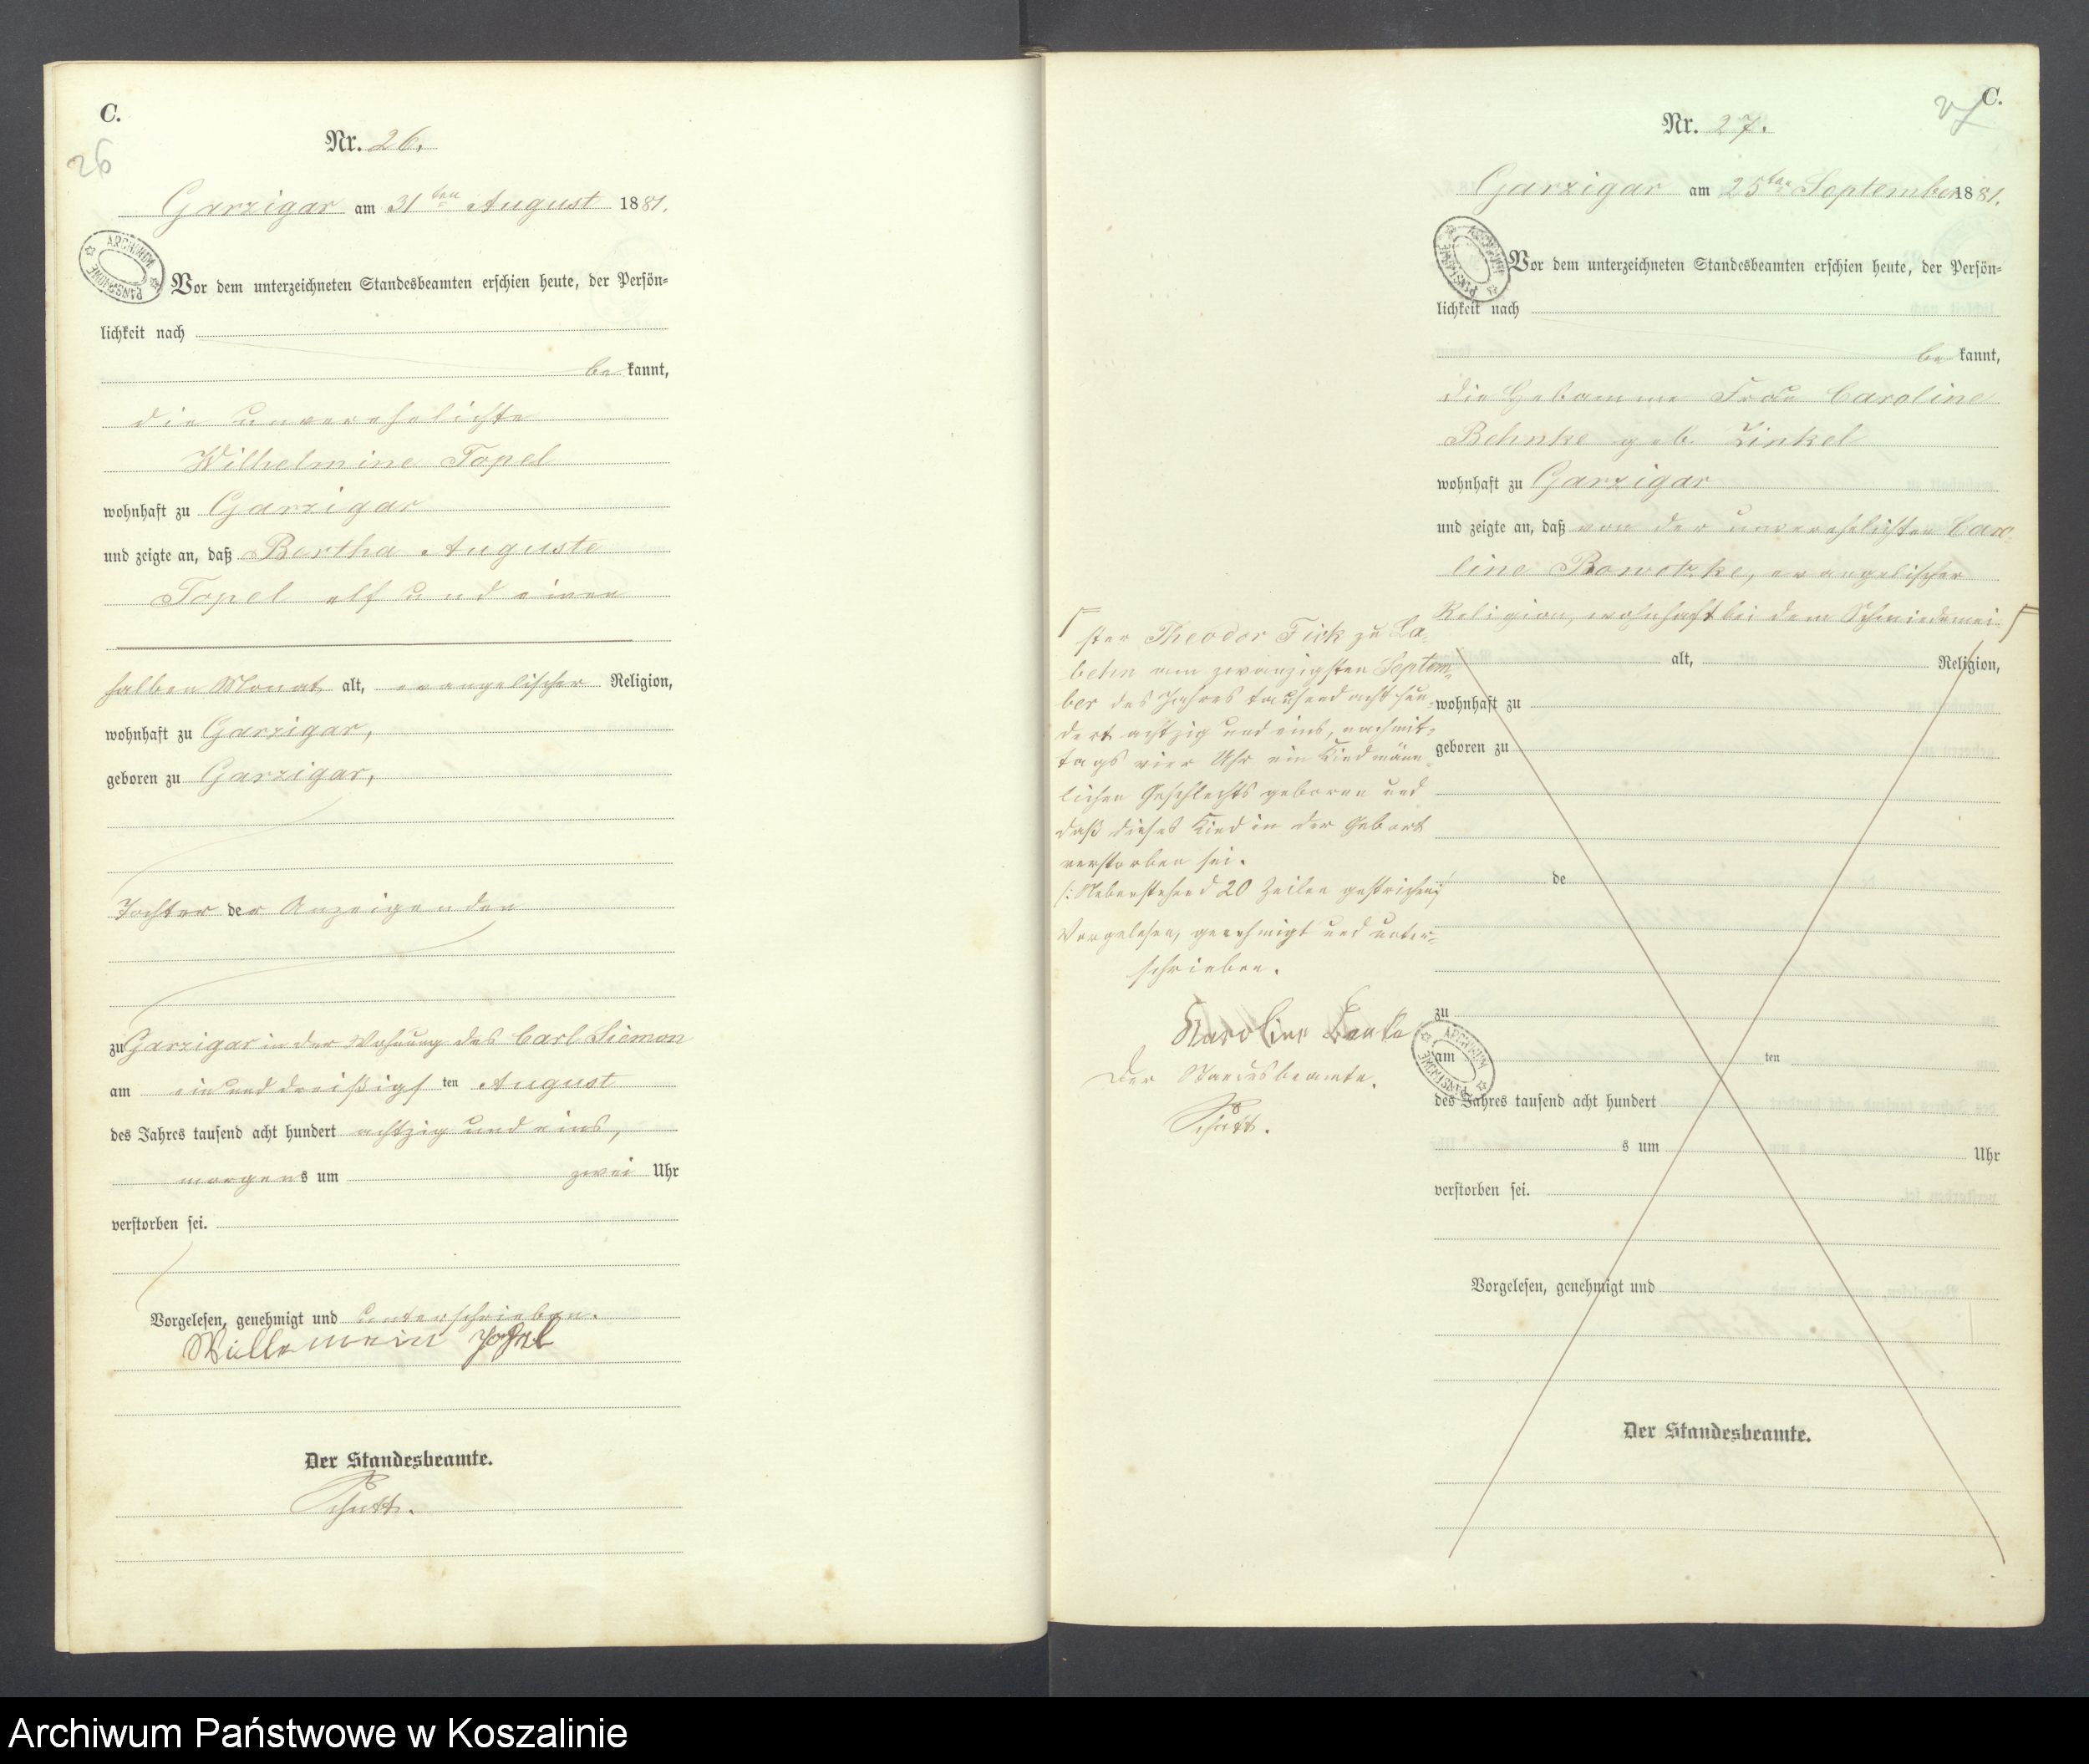 C.
26
Nr. 26.
Garzigar am 31ten August 1881.
ARCHIWUM PAŃSTWOWE
Vor dem unterzeichneten Standesbeamten erschien heute, der Persön=
lichkeit nach
be kannt,
die unverehelichte
Wilhelmine Topel
wohnhaft zu Garzigar
und zeigte an, daß Bertha Auguste
Topel elf und einen
halben Monat alt, evangelischer Religion,
wohnhaft zu Garzigar,
geboren zu Garzigar,
Tochter der Anzeigenden
zu Garzigar in der Wohnung des Carl Siemon
am ein und dreißigsten August
des Jahres tausend acht hundert achtzig und eins,
morgens um zwei Uhr
verstorben sei.
Vorgelesen, genehmigt und unterschrieben.
Topel
Der Standesbeamte.
Schutt.
C.
27
Nr. 27.
Garzigar am 25ten September 1881.
ARCHIWUM PAŃSTWOWE
Vor dem unterzeichneten Standesbeamten erschien heute, der Persön=
lichkeit nach
be kannt,
die Hebamme Frau Caroline
Behnke geb. Zinkel
wohnhaft zu Garzigar
und zeigte an, daß von der unverehelichten Caro-
line evangelischer
Religion, wohnhaft bei dem Schmiedemei-
ster Theodor Fick zu La-
behn am zwanzigsten Septem-
ber des Jahres tausend acht hun-
dert achtzig und eins, nachmit-
tags vier Uhr ein Kind männ-
lichen Geschlechts geboren und
daß dieses Kind in der Geburt
verstorben sei.
/: Nebenstehend 20 Zeilen gestrichen :/
Vorgelesen, genehmigt und unter-
schrieben.
Karoline Benke
Der Standesbeamte.
Schutt.
alt, Religion,
wohnhaft zu
geboren zu
de
zu
ARCHIWUM PAŃSTWOWE
am ten
des Jahres tausend acht hundert
s um Uhr
verstorben sei.
Vorgelesen, genehmigt und
Der Standesbeamte.
Archiwum Państwowe w Koszalinie